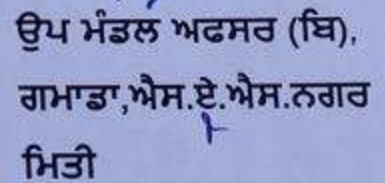 ਉਪ ਮੰਡਲ ਅਫਸਰ (ਬਿ),
ਗਮਾਡਾ,ਐਸ.ਏ.ਐਸ.ਨਗਰ
ਮਿਤੀ